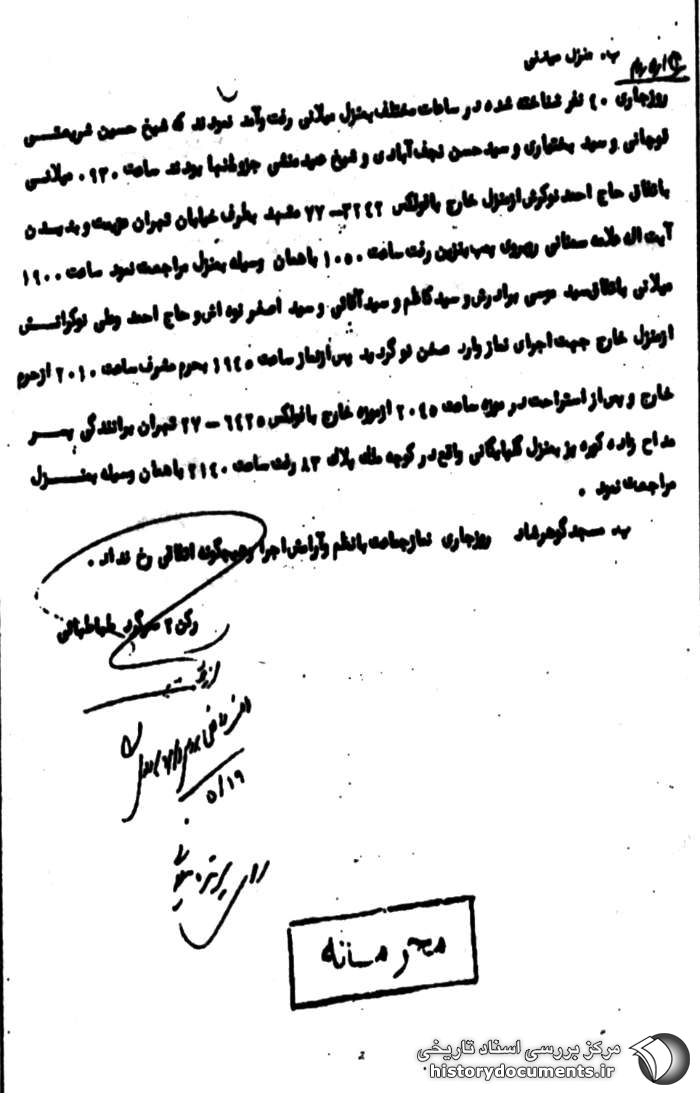 ب. منزل میلانی
روزجاری ۴۰ نفر شناخته شده در ساعات مختلف بمنزل میلانی رفت وآمد نمودند که شیخ حسین شریعتی
قوچانی و سید بختیاری و سیدحسن نجف آبادی و شیخ جزو آنها بودند ساعت ۰۹۳۰ میلانی
باتفاق حاج احمد نوکرش ازمنزل خارج بافولکس ۳۲۴۲-۷۷ مشهد بطرف خیابان تهران عزیمت و بدیدن
آیت اله علامه سمنانی روبروی پمپ بنزین رفت ساعت ۱۰۵۰ باهمان وسیله بمنزل مراجعت نمود ساعت ۱۹۰۰
میلانی باتفاق سید موسی برادرش و سیدکاظم و سیدآقائی و سید اصغر نوه اش و حاج احمد وعلی نوکرانش
ازمنزل خارج جهت اجرای نماز وارد صحن نو گردید پس ازنماز ساعت ۱۹۴۵ بحرم مشرف ساعت ۲۰۱۰ ازحرم
خارج و پس از استراحت در موزه ساعت ۲۰۴۵ ازموزه خارج بافولکس ۶۴۲۵-۲۷ تهران برانندگی پسر
مداح زاده کوره پز بمنزل گلپایگانی واقع در کوچه پلاک ۸۳ رفت ساعت ۲۱۴۰ باهمان وسیله بمنزل
مراجعت نمود .
پ. مسجدگوهرشاد روزجاری نمازجماعت بانظم وآرامش اجرا وهیچگونه اتفاقی رخ نداد .
رکن ۲ سرگرد طباطبائی
۵/۱۹
محرمانه
2
مرکز بررسی اسناد تاریخی
historydocuments.ir